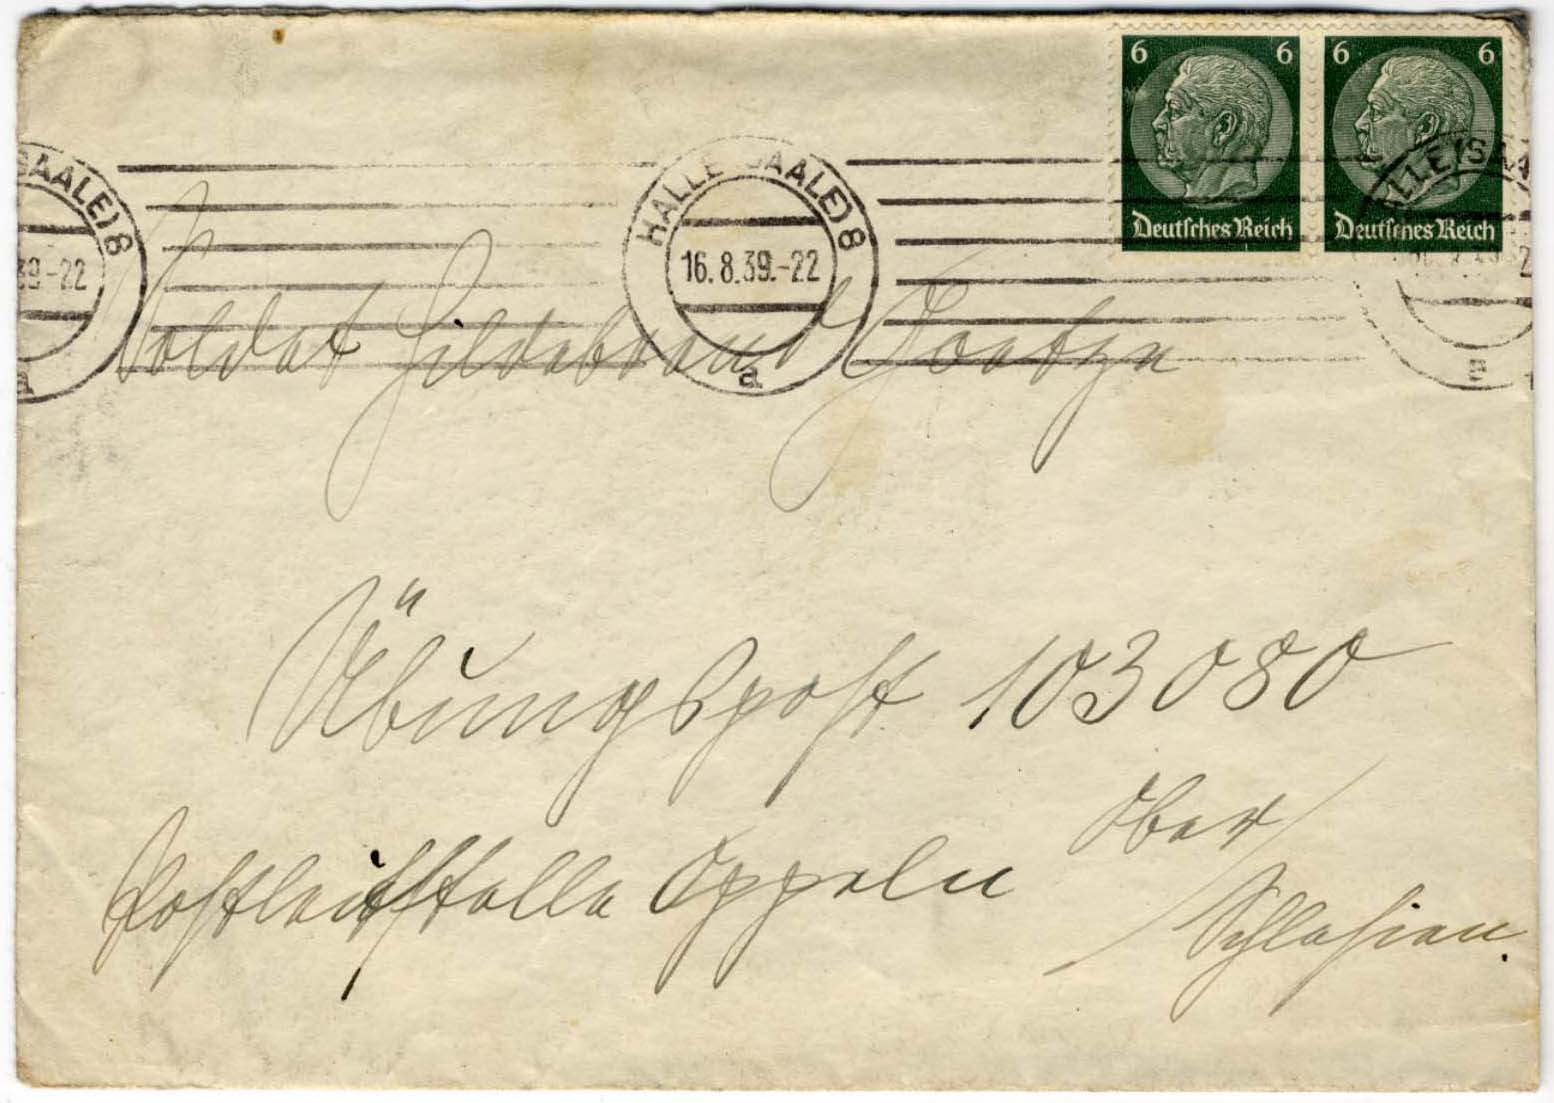 6 6 6 6
Deutsches Reich Deutsches Reich
SAALE) 8 HALLE (SAALE) 8 HALLE (SAA
39.-22 16.8.39.-22
a a a
Soldat Hildebrand Goetze
Übungspost 103080
Postleitstelle Oppeln Ober/
Schlesien.